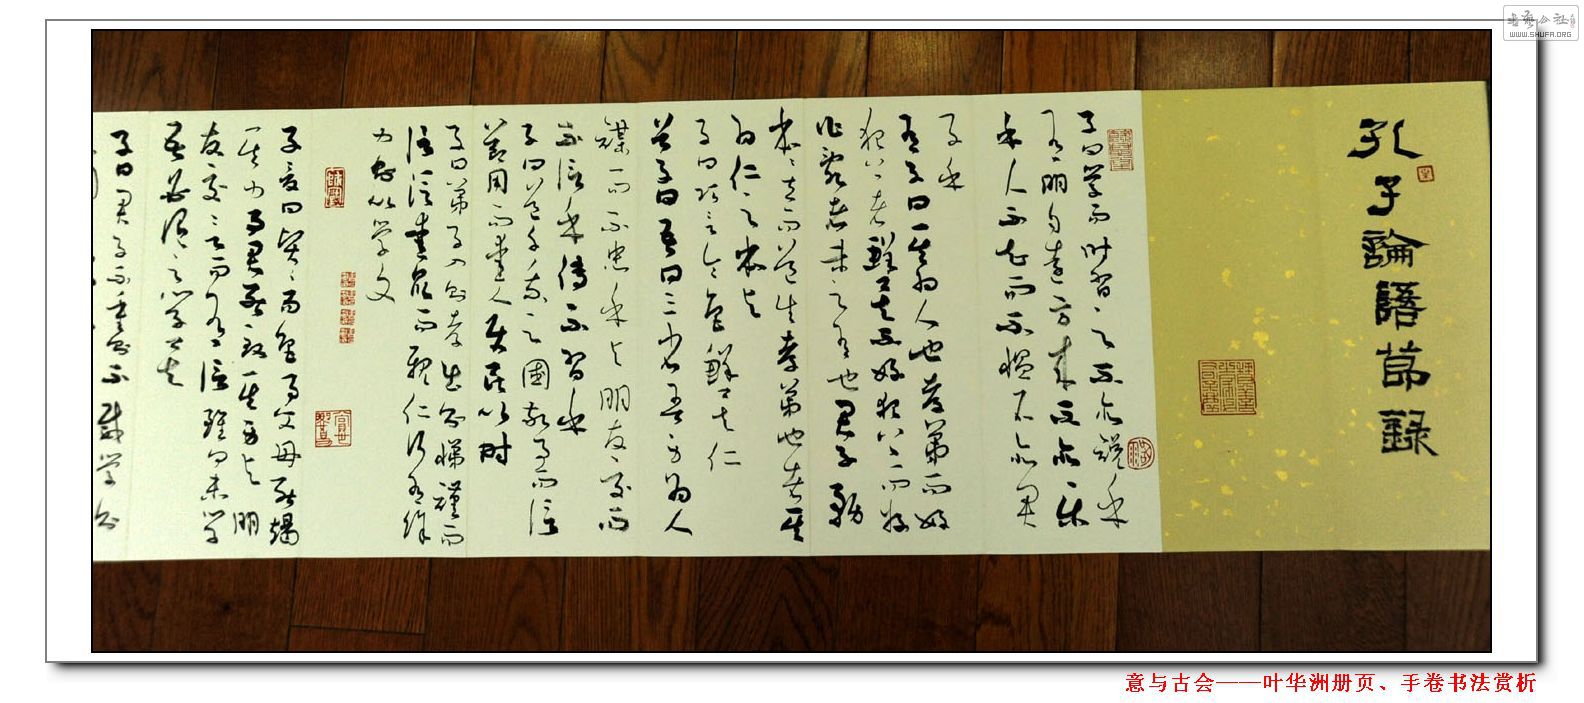 孔子論語節錄
子曰學而時習之不亦說乎
有朋自遠方來不亦樂
乎人不知而不慍不亦君
子乎
有子曰其為人也孝弟而好
犯上者鮮矣不好犯上而好
作亂者未之有也君子務
本〻立而道生孝弟也者其
為仁之本與
子曰巧言令色鮮矣仁
曾子曰吾日三省吾身為人
謀而不忠乎與朋友交而
不信乎傳不習乎
子曰道千乘之國敬事而信
節用而愛人使民以時
子曰弟子入則孝出則悌謹而
信汎愛眾而親仁行有餘
力則以學文
子夏曰賢〻易色事父母能竭
其力事君能致其身與朋
友交言而有信雖曰未學
吾必謂之學矣
子曰君子不重則不威學則
意与古会——叶华洲册页、手卷书法赏析
WWW.SHUFA.ORG